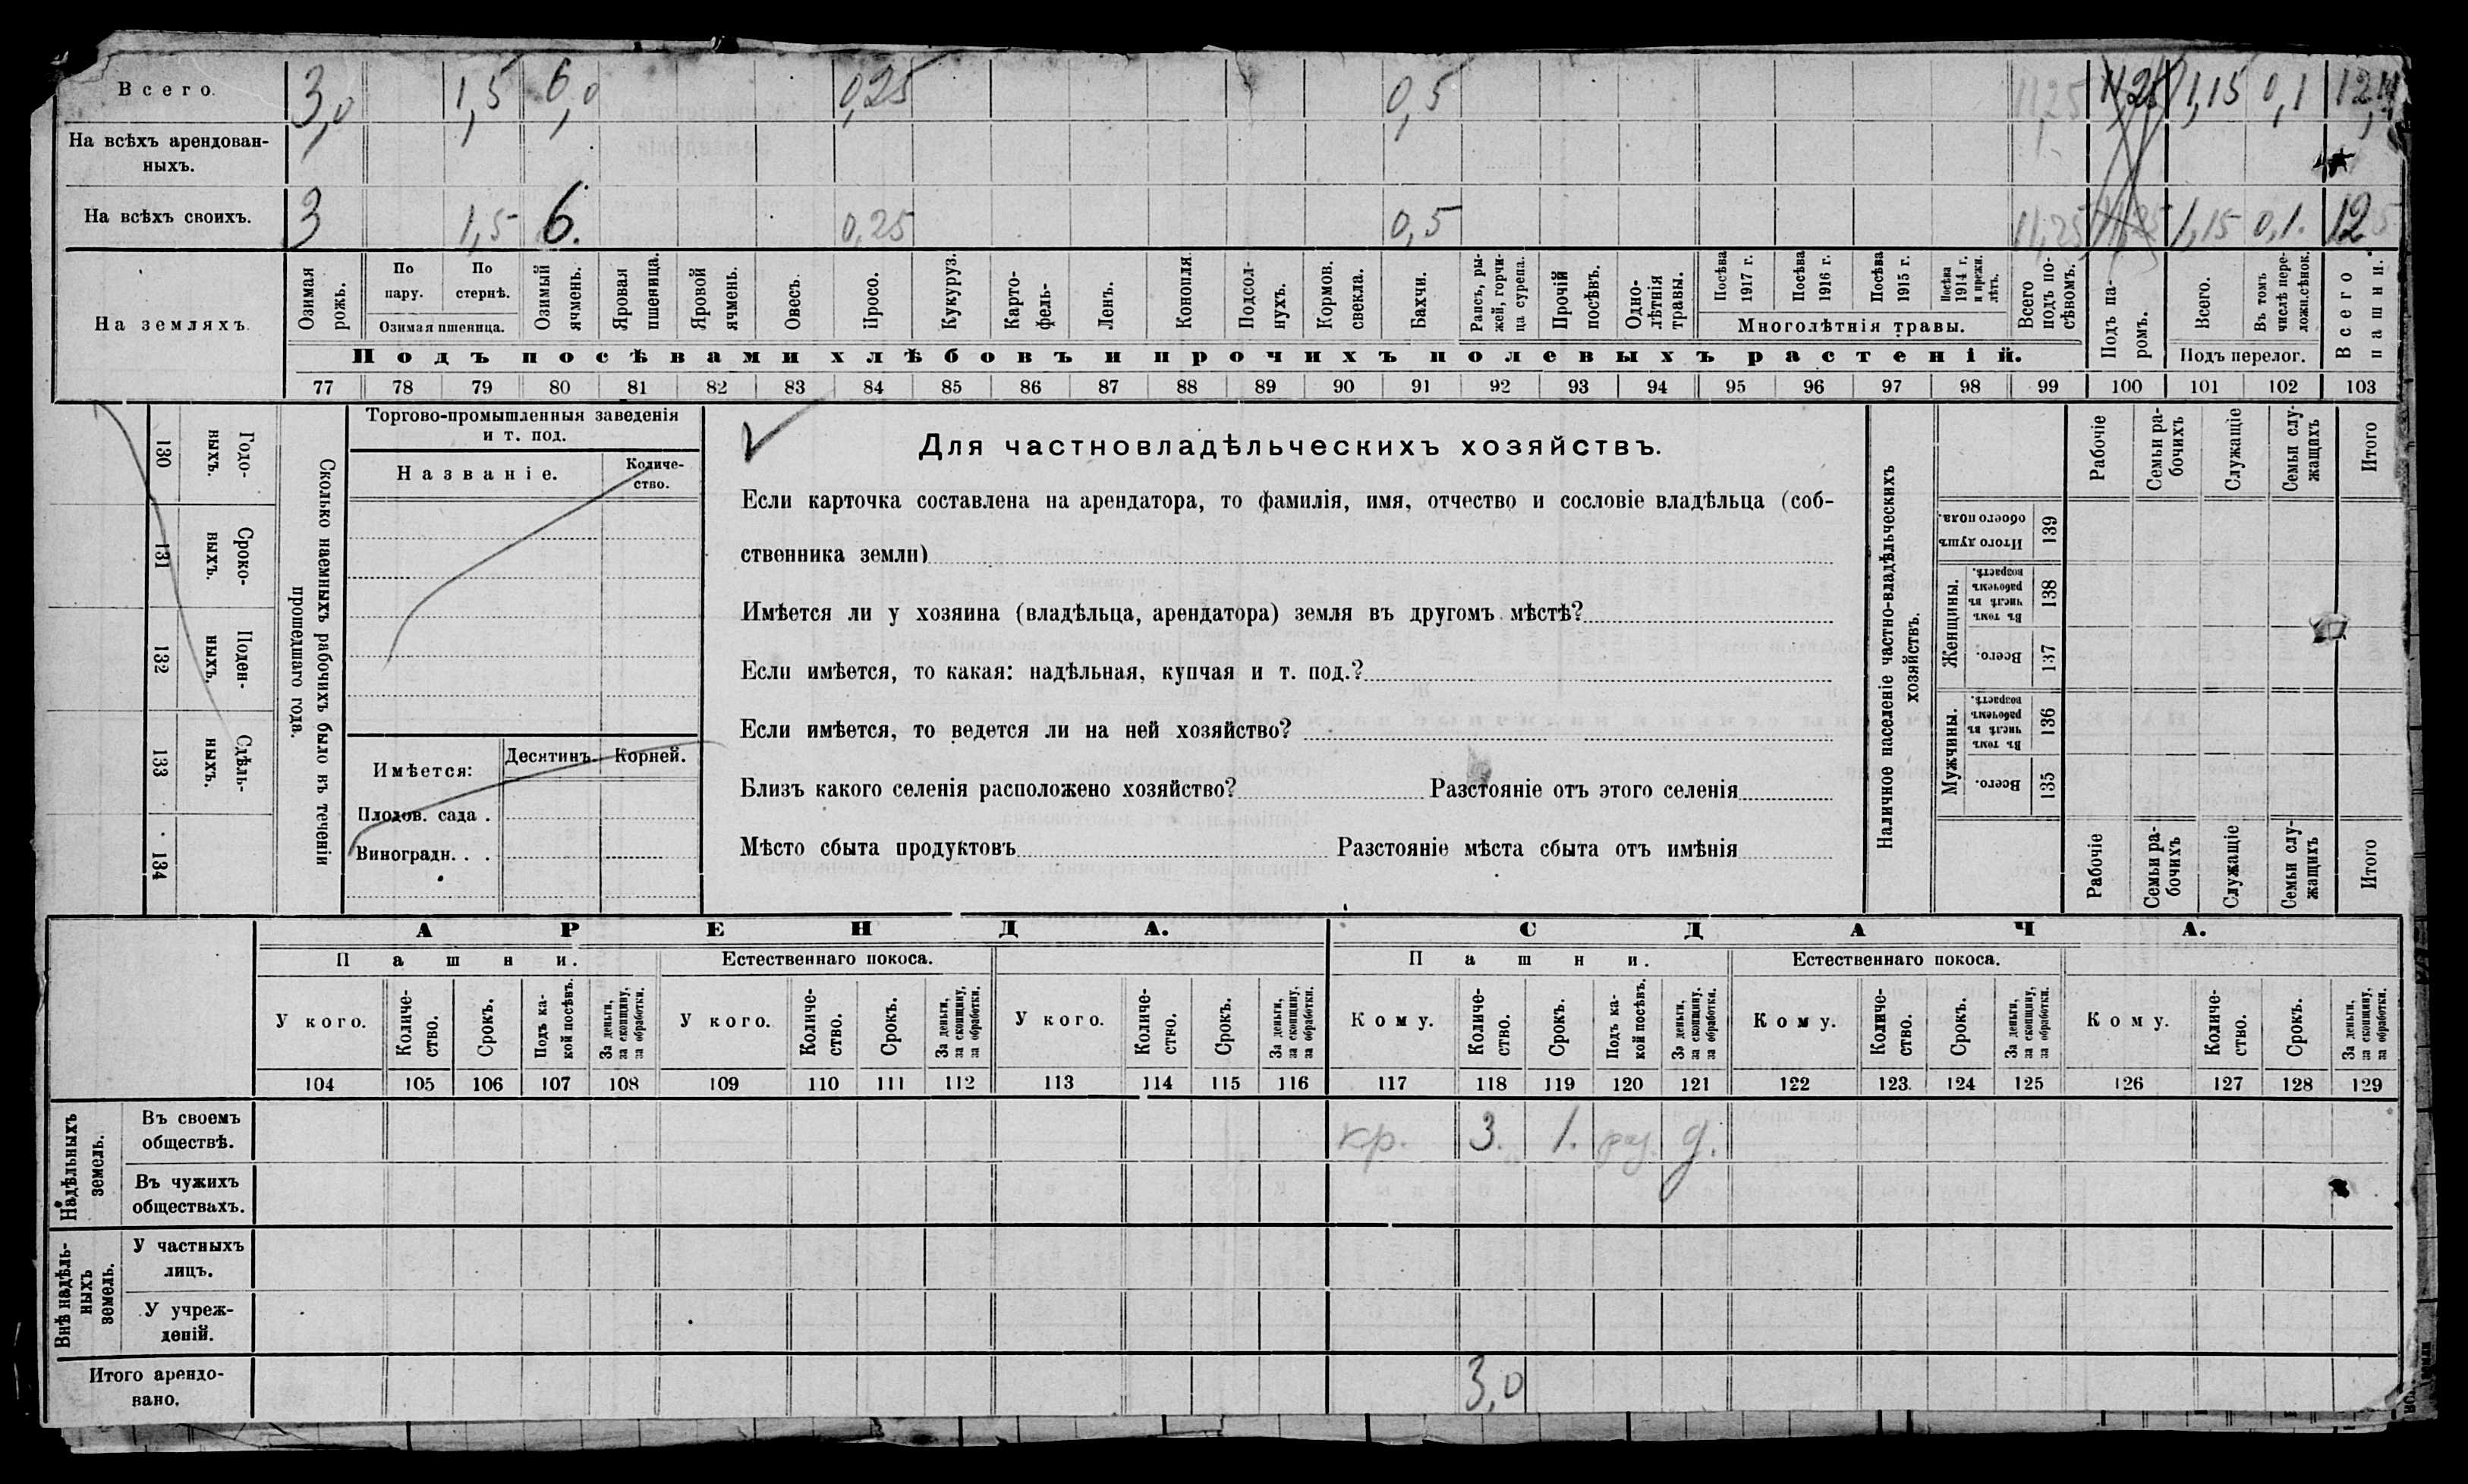 Всего. 3,0 1,5 6,0 0,25 0,5 11,25 11,25 1,15 0,1
На всѣхъ арендован-
ныхъ.
На всѣхъ своихъ. 3 1,5 6. 0,25 0,5 11,25 11,25 1,15 0,1. 12,5
На земляхъ.
Озимая рожь.
По пару.
По стернѣ.
Озимая пшеница.
Озимый ячмень.
Яровая пшеница.
Яровой ячмень.
Овесъ.
Просо.
Кукуруз.
Карто-
фель-
Ленъ.
Конопля
Подсол-
нухъ.
Кормов. свекла.
Бахчи.
Рапсъ, ры-
жей, горчи-
ца сурепа.
Прочій посѣвъ.
Одно-
лѣтнія травы.
Посѣва 1917 г.
Посѣва 1916 г.
Посѣва 1915 г.
Посѣва 1914 г. и прежн. лѣтъ.
Многолѣтнія травы.
Всего подъ по-
сѣвомъ.
Подъ посѣвами хлѣбовъ и прочихъ полевыхъ растеній.
Подъ па-
ромъ.
Всего.
Въ томъ числѣ пере-
ложн. сѣнок.
Подъ перелог.
Всего пашни.
77 78 79 80 81 82 83 84 85 86 87 88 89 90 91 92 93 94 95 96 97 98 99 100 101 102 103
130 Годо-
ныхъ.
131 Сроко-
выхъ.
132 Поден-
ныхъ.
133 Сдѣль-
ныхъ.
134
Сколько наемныхъ рабочихъ было въ теченіи
прошедшаго года.
Торгово-промышленныя заведенія
и т. под.
Названіе.
Количе-
ство.
Имѣется:
Десятинъ.
Корней.
Плодов. сада .
Виноградн. . .
Для частновладѣльческихъ хозяйствъ.
Если карточка составлена на арендатора, то фамилія, имя, отчество и сословіе владѣльца (соб-
ственника земли)
Имѣется ли у хозяина (владѣльца, арендатора) земля въ другомъ мѣстѣ?
Если имѣется, то какая: надѣльная, купчая и т. под.?
Если имѣется, то ведется ли на ней хозяйство?
Близъ какого селенія расположено хозяйство? Разстояніе отъ этого селенія
Мѣсто сбыта продуктовъ Разстояніе мѣста сбыта отъ имѣнія
Наличное населеніе частно-владѣльческихъ
хозяйствъ.
Рабочіе
Семьи ра-
бочихъ
Служащіе
Семьи слу-
жащихъ
Итого
Итого душъ обоего пола.
139
Женщины.
Въ томъ числѣ въ рабочемъ возрастѣ.
138
Всего.
137
Мужчины.
Въ томъ числѣ въ рабочемъ возрастѣ.
136
Всего.
135
Рабочіе
Семьи ра-
бочихъ
Служащіе
Семьи слу-
жащихъ
Итого
АРЕНДА. СДАЧА.
Пашни. Естественнаго покоса. Пашни. Естественнаго покоса.
У кого.
Количе-
ство.
Срокъ.
Подъ ка-
кой посѣвъ.
За деньги, за скопщину, за обработки.
У кого.
Количе-
ство.
Срокъ.
За деньги, за скопщину, за обработки.
У кого.
Количе-
ство.
Срокъ.
За деньги, за скопщину, за обработки.
Кому.
Количе-
ство.
Срокъ.
Подъ ка-
кой посѣвъ.
За деньги, за скопщину. за обработки.
Кому.
Количе-
ство.
Срокъ.
За деньги, за скопщину, за обработки.
Кому.
Количе-
ство.
Срокъ.
За деньги, за скопщину, за обработки.
104 105 106 107 108 109 110 111 112 113 114 115 116 117 118 119 120 121 122 123. 124 125 126 127 128 129
Надѣльныхъ земель.
Въ своемъ
обществѣ.
кр. 3. 1. д.
Въ чужихъ
обществахъ.
Внѣ надѣль-
ныхъ земель.
У частныхъ
лицъ.
У учреж-
деній.
Итого арендо-
вано.
3,0